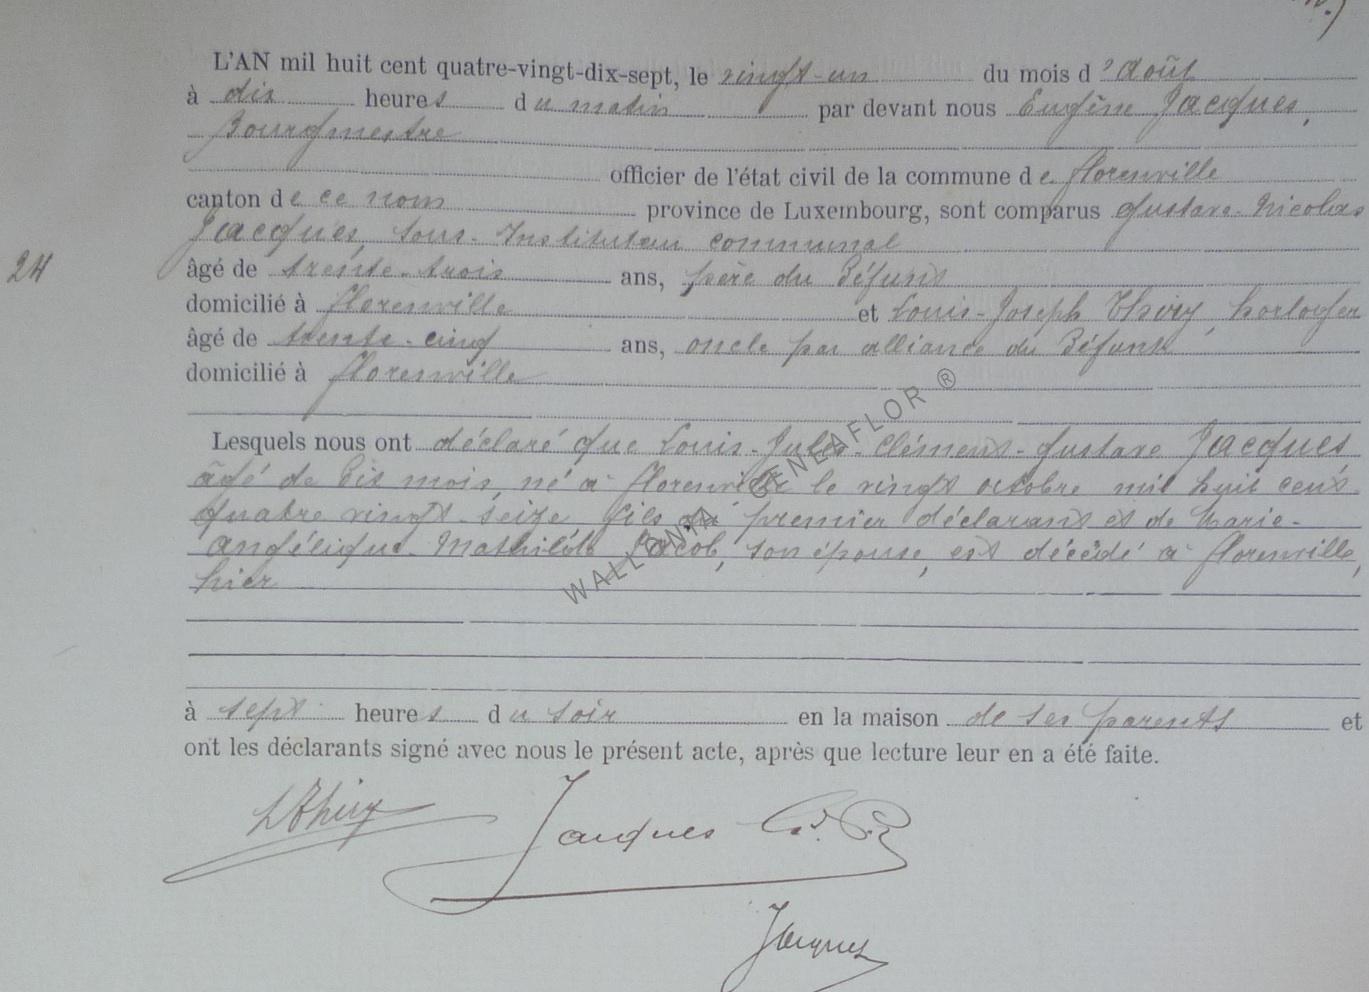 L'AN mil huit cent quatre-vingt-dix-sept, le vingt-un du mois d'Août
à dix heures du matin par devant nous Eugène Jacques,
Bourgmestre
officier de l'état civil de la commune de Florenville
canton de ce nom province de Luxembourg, sont comparus Gustave-Nicolas
Jacques, sous-Instituteur communal
24
âgé de trente-trois ans, père du Défunt
domicilié à Florenville et Louis-Joseph Thiry, horloger
âgé de trente-cinq ans, oncle par alliance du Défunt
domicilié à Florenville
Lesquels nous ont déclaré que Louis-Jules-Clément-Gustave Jacques
âgé de Dix mois, né à Florenville le vingt octobre mil huit cent
quatre vingt-seize, fils du premier déclarant et de Marie-
Angélique-Mathilde Jacob, son épouse, est décédé à Florenville,
hier
à sept heures du soir en la maison de ses parents et
ont les déclarants signé avec nous le présent acte, après que lecture leur en a été faite.
LThiry Jacques
Jacques
WALLONIA GENEAFLOR ®